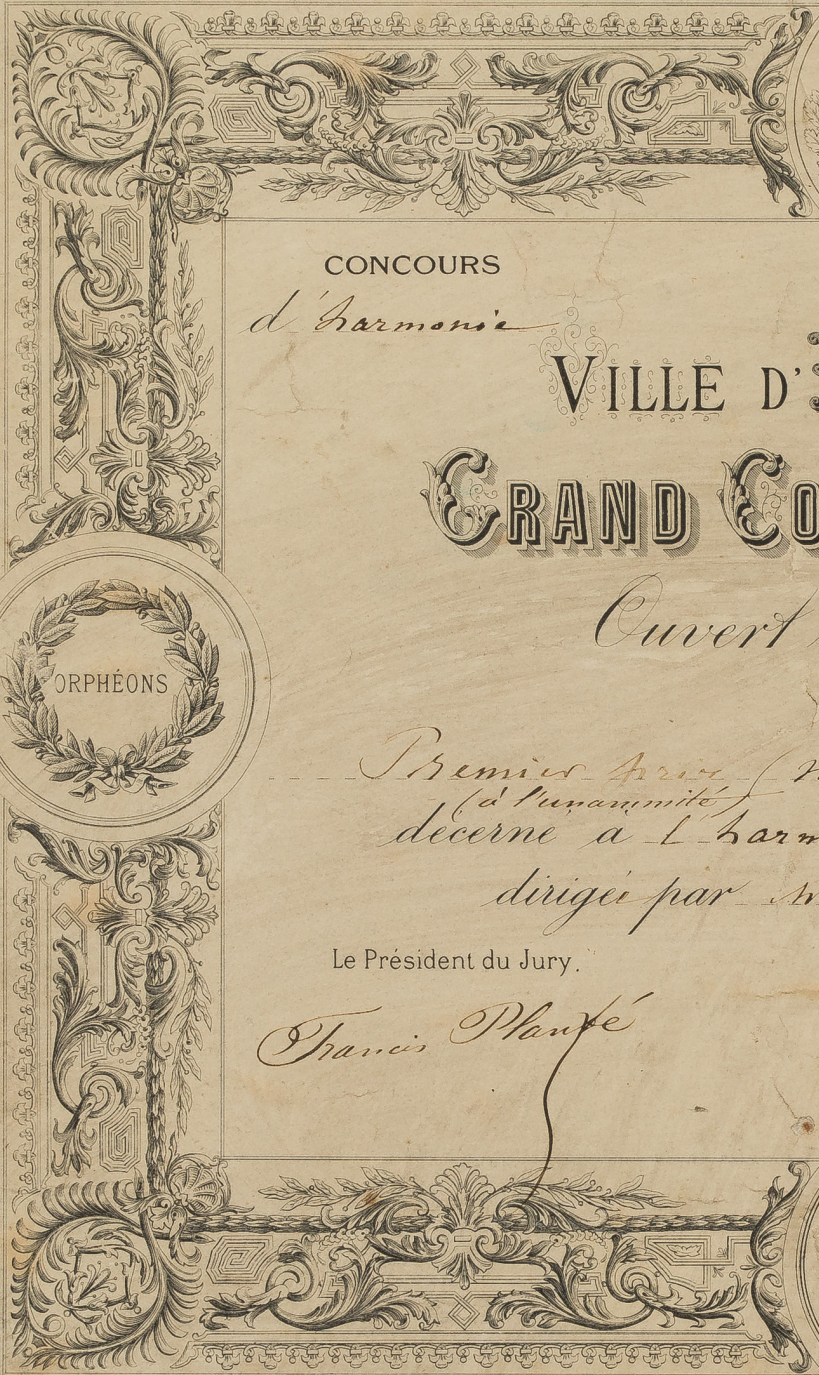 CONCOURS
d'harmonie
VILLE D'
GRAND CO
Ouvert
ORPHÉONS
Premier prix (
(à l'unanimité)
décerné à l'harm
dirigée par
Le Président du Jury.
Francis Planté